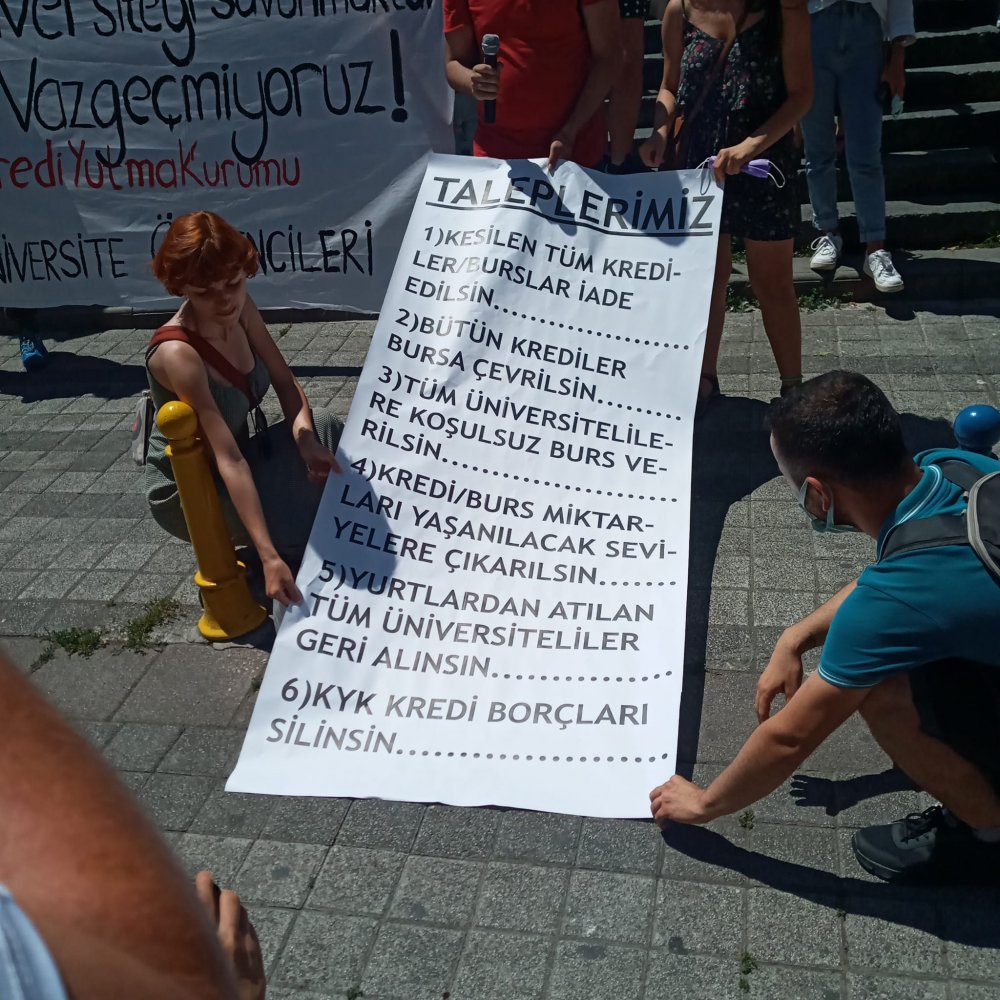 Vazgeçmiyoruz!
KrediYutmaKurumu
ÜNİVERSİTE ÖĞRENCİLERİ
TALEPLERİMİZ
1)KESİLEN TÜM KREDİ-
LER/BURSLAR İADE
EDİLSİN....................
2)BÜTÜN KREDİLER
BURSA ÇEVRİLSİN.........
3)TÜM ÜNİVERSİTELİLE-
RE KOŞULSUZ BURS VE-
RİLSİN........................
4)KREDİ/BURS MİKTAR-
LARI YAŞANILACAK SEVİ-
YELERE ÇIKARILSIN.......
5)YURTLARDAN ATILAN
TÜM ÜNİVERSİTELİLER
GERİ ALINSIN...............
6)KYK KREDİ BORÇLARI
SİLİNSİN.......................